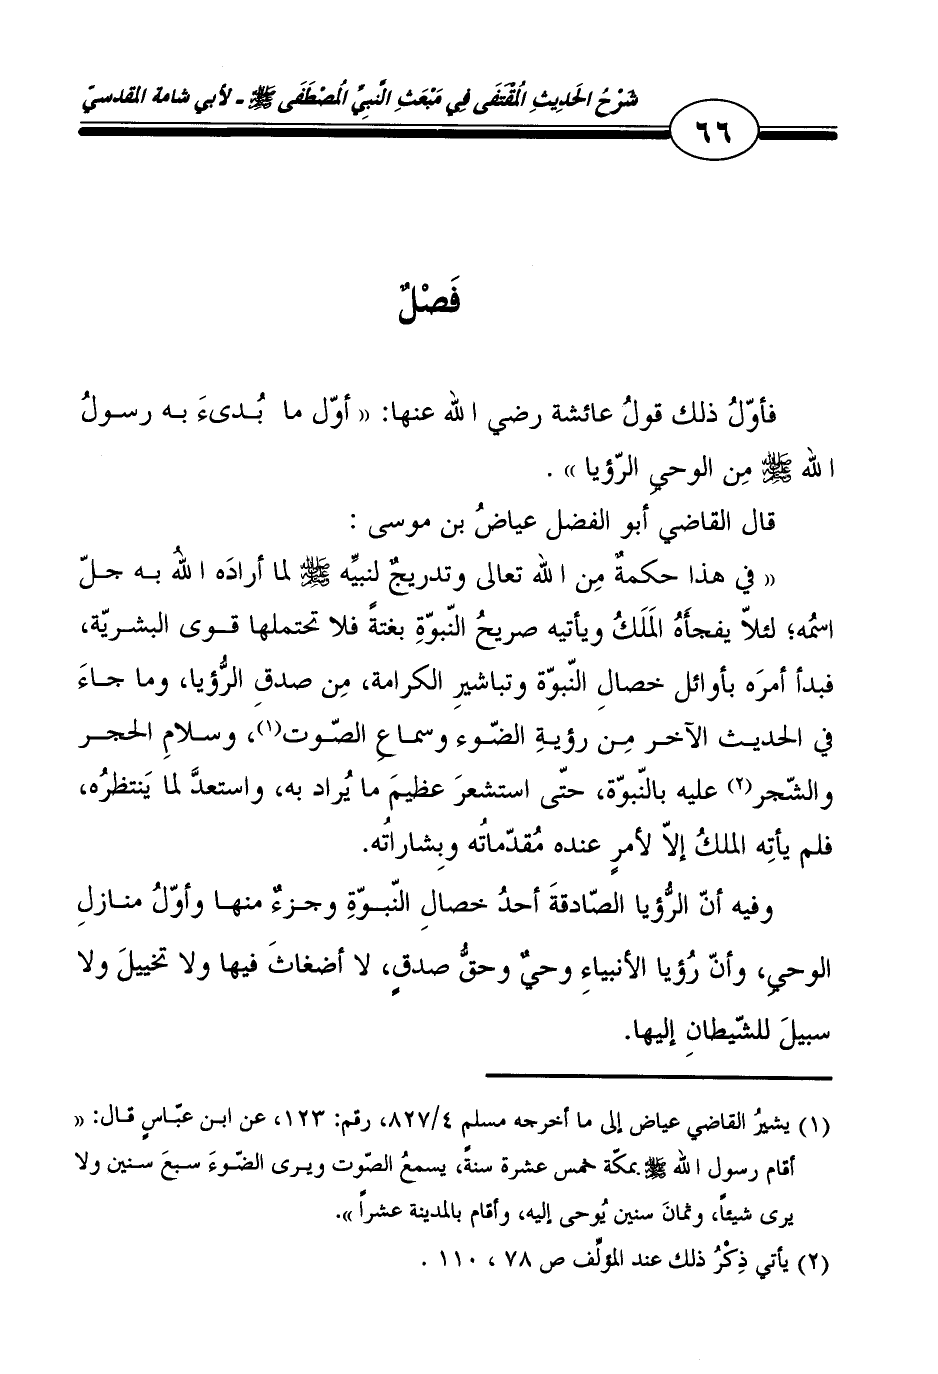 شَرْحُ الحَدِيثِ المُقْتَفَى فِي مَبْعَثِ النَّبِيِّ المُصْطَفَى ﷺ - لأبي شامة المقدسيّ
٦٦
فَصْلٌ
فأوّلُ ذلك قولُ عائشة رضي الله عنها: « أوّل ما بُدىءَ به رسولُ
الله ﷺ مِن الوحيِ الرّؤيا » .
قال القاضي أبو الفضل عياضُ بن موسى :
« في هذا حكمةٌ مِن الله تعالى وتدريجٌ لنبيِّه ﷺ لما أرادَه اللهُ به جلّ
اسمُه؛ لئلاّ يفجأَهُ المَلَكُ ويأتيه صريحُ النّبوّةِ بغتةً فلا تحتملها قوى البشريّة،
فبدأ أمرَه بأوائل خصالِ النّبوّة وتباشيرِ الكرامة، مِن صدقِ الرُّؤيا، وما جاءَ
في الحديث الآخر مِن رؤيةِ الضّوء وسماعِ الصّوت(١)، وسلامِ الحجر
والشّجر(٢) عليه بالنّبوّة، حتّى استشعرَ عظيمَ ما يُراد به، واستعدَّ لما يَنتظرُه،
فلم يأتِه الملكُ إلاّ لأمرٍ عنده مُقدّماتُه وبِشاراتُه.
وفيه أنّ الرُّؤيا الصّادقةَ أحدُ خصالِ النّبوّةِ وجزءٌ منها وأوّلُ منازلِ
الوحيِ، وأنّ رُؤيا الأنبياءِ وحيٌ وحقُّ صدقٍ، لا أضغاثَ فيها ولا تخييلَ ولا
سبيلَ للشّيطانِ إليها.
(١) يشيرُ القاضي عياض إلى ما أخرجه مسلم ٨٢٧/٤، رقم: ١٢٣، عن ابن عبّاسٍ قال: «
أقام رسول الله ﷺ بمكّة خمس عشرة سنةً، يسمعُ الصّوت ويرى الضّوءَ سبعَ سنين ولا
يرى شيئاً، وثمانَ سنين يُوحى إليه، وأقام بالمدينة عشراً ».
(٢) يأتي ذِكْرُ ذلك عند المؤلِّف ص ٧٨ ، ١١٠ .